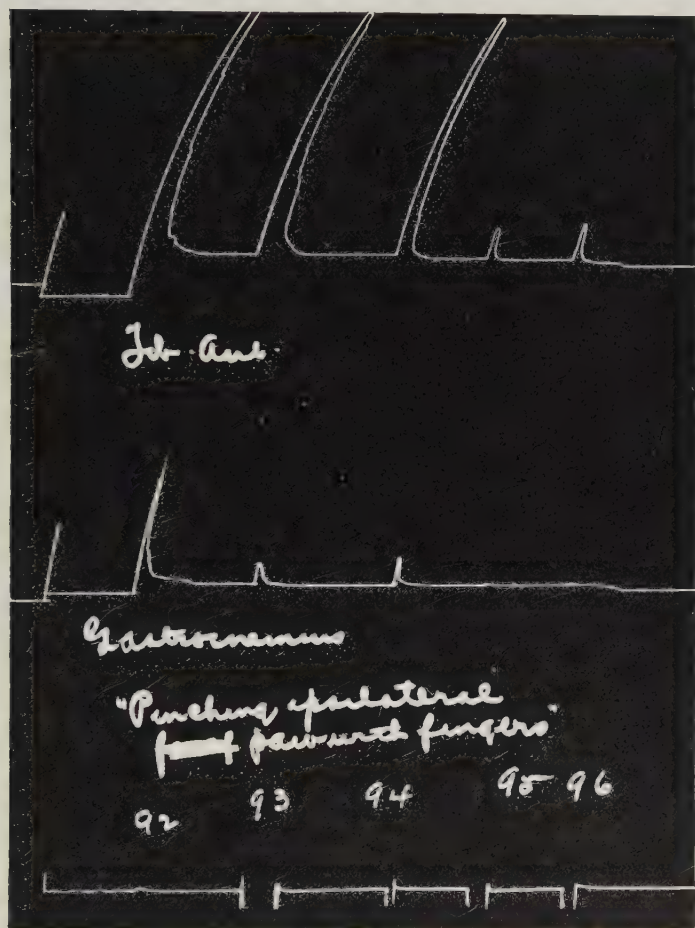 Tib. Ant.
Gastrocnemius
"Pinching ipsilateral
paw with fingers"
92 93 94 95 96